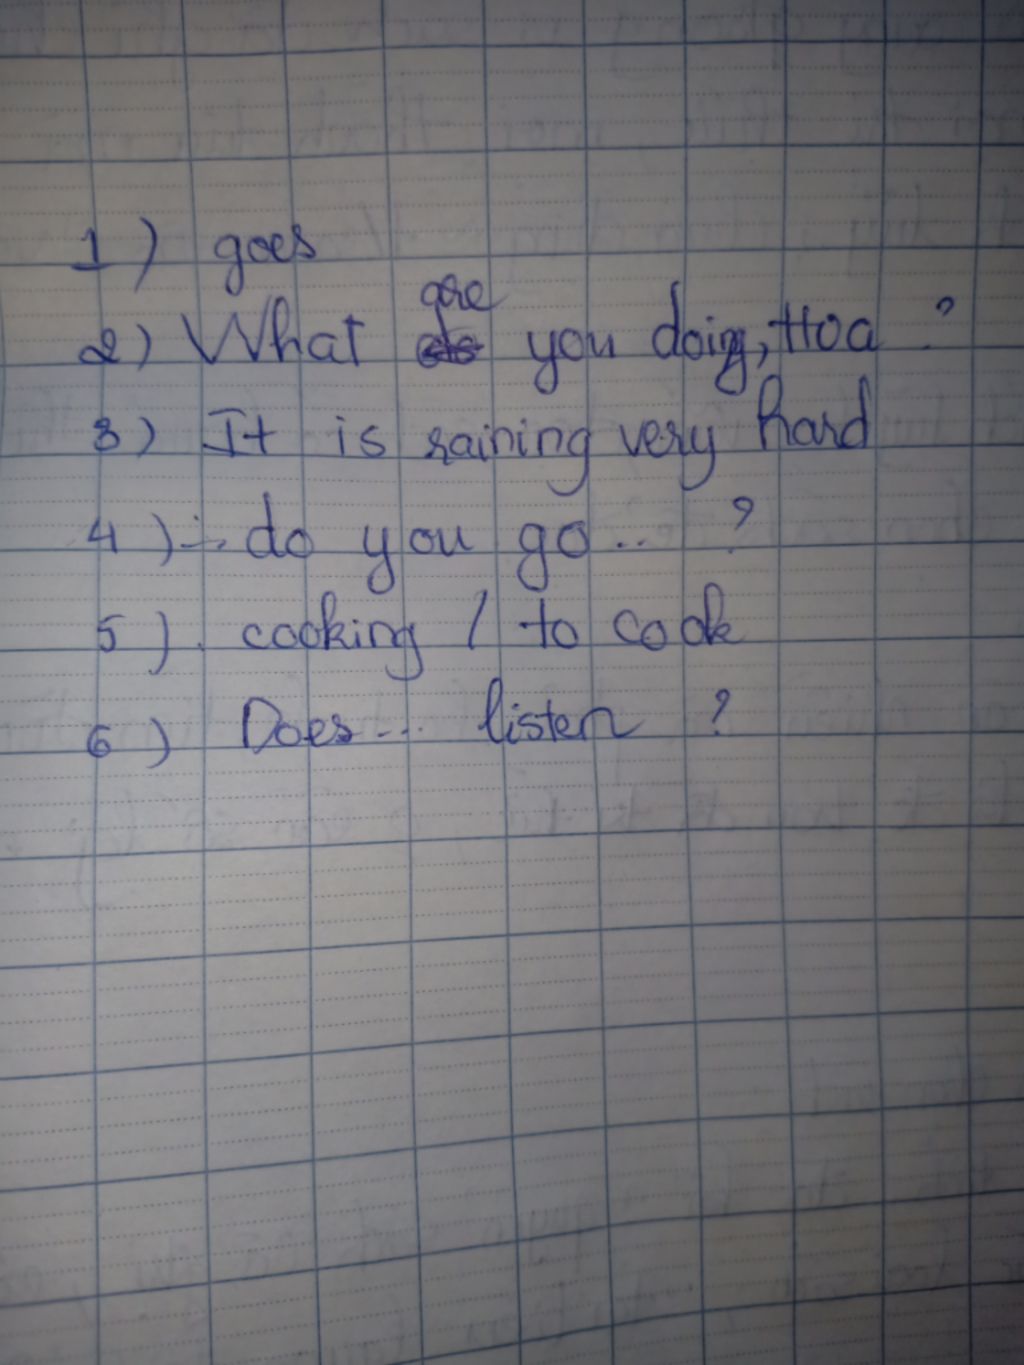 1) goes
2) What are you doing, Hoa ?
3) It is raining very hard
4) ... do you go ... ?
5) . cooking / to cook
6) Does ... listen ?